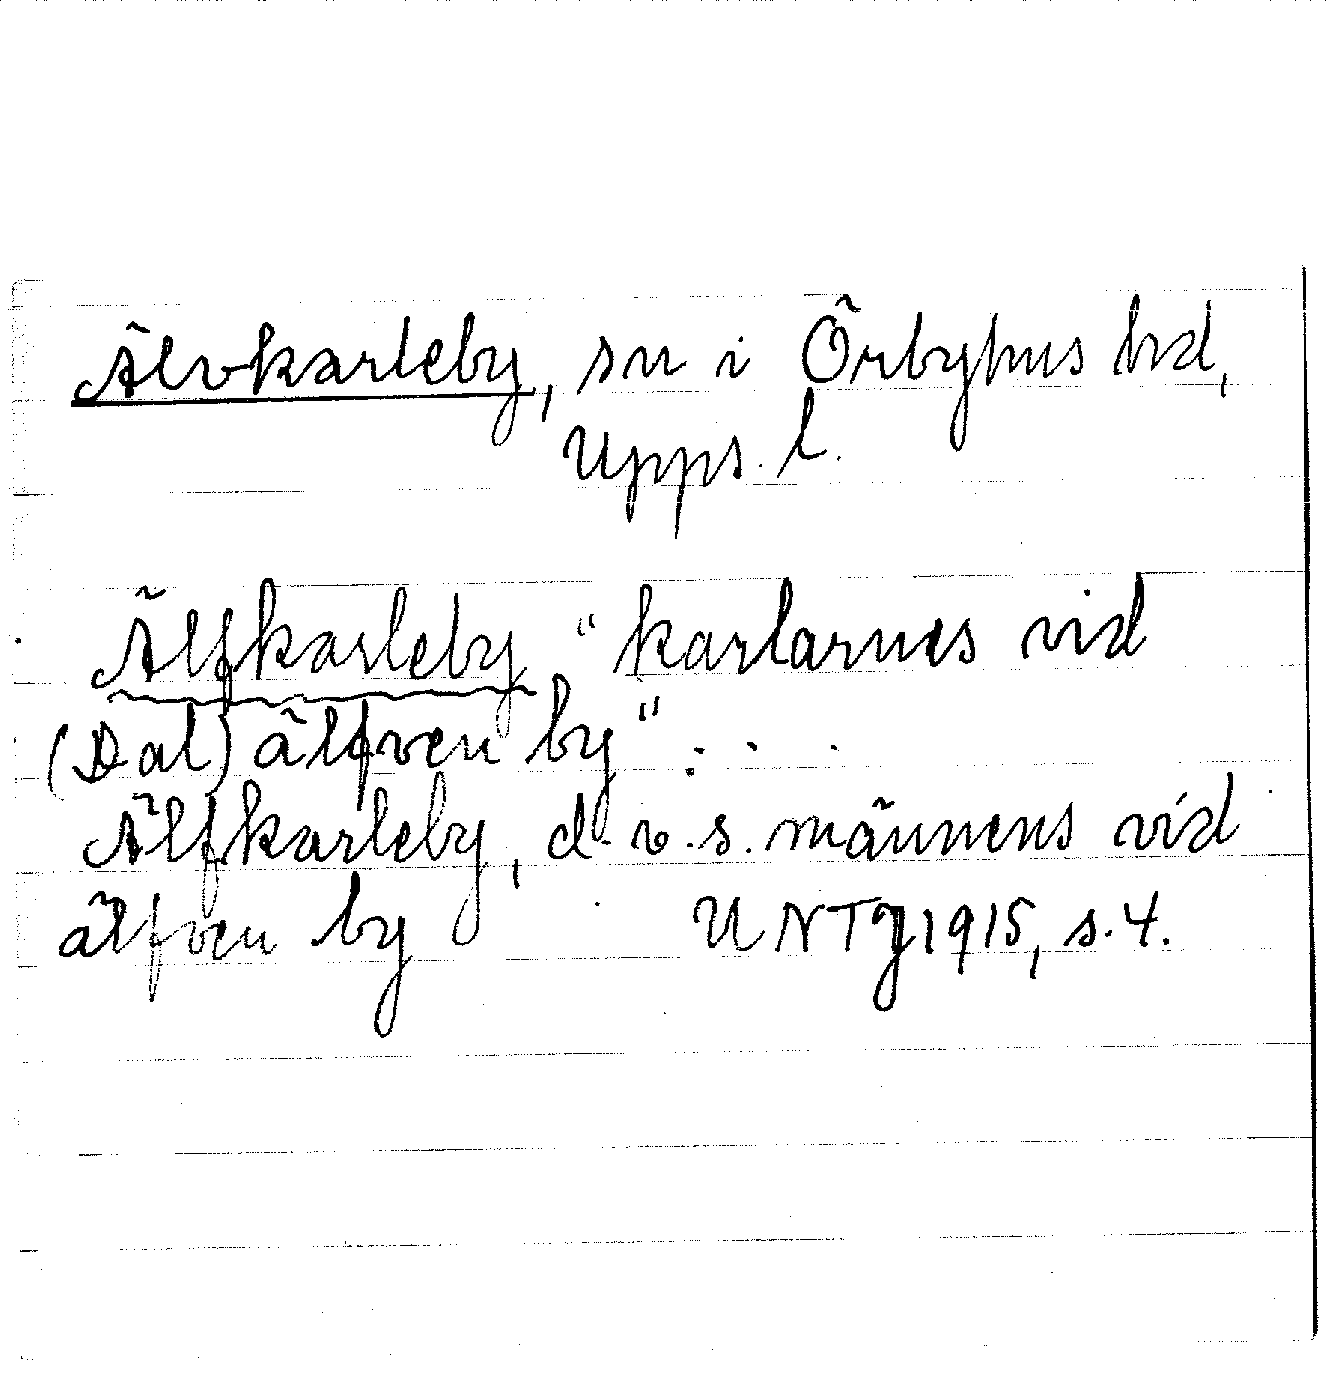 Älvkarleby, sn i Örbyhus hd,
Upps. l.
Älfkarleby "karlarnes vid
(Dal)älfven by" . . .
Älfkarleby, d. v. s. männens vid
älfven by UNTg 1915, s. 4.